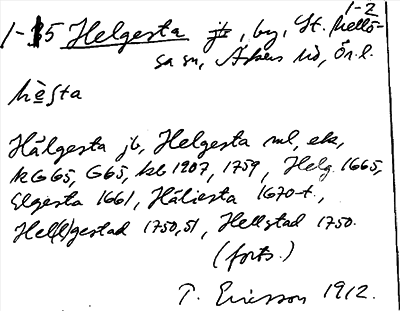 1-2
1-15 Helgesta jb, by, St. Mellö-
sa sn, Askers hd, Ör. l.
hèsta
Hälgesta jb, Helgesta ml, ek,
KG 65, G 65, kb 1907, 1759, Helg. 1665,
Elgesta 1661, Häliesta 1670-t.,
Hel(l)gestad 1750, 51, Hellstad 1750.
(forts.)
T. Ericsson 1912.